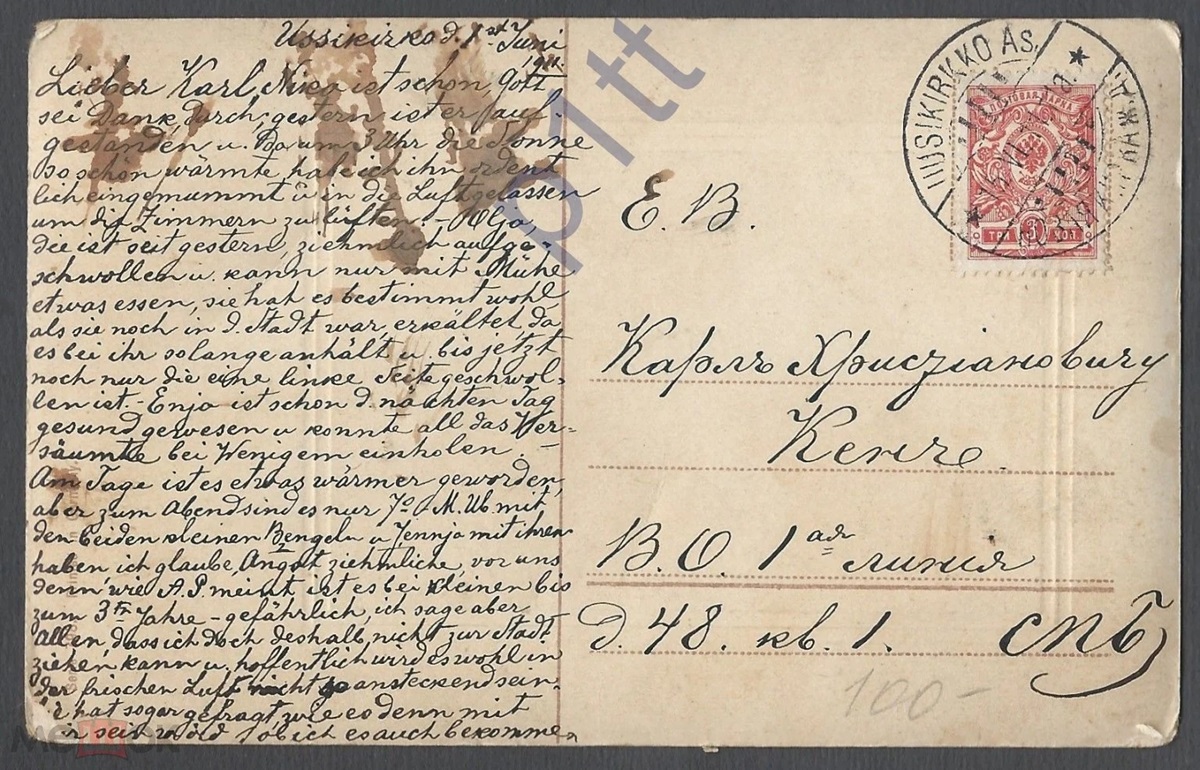 Ussikirko d. 1st Juni
1911.
Lieber Karl, Nico ist schon, Gott
sei Dank, durch; gestern ist er auf-
gestanden u. Da um 3 Uhr die Sonne
so schön wärmte, habe ich ihn ordent
lich eingemummt u in die Luft gelassen
um die Zimmern zu lüften. – Olja,
die ist seit gestern ziehmlich aufge-
schwollen u. kann nur mit Mühe
etwas essen, sie hat es bestimmt wohl,
als sie noch in d. Stadt war, erkältet, da
es bei ihr so lange anhält u. bis jetzt
noch nur die eine linke Seite geschwol-
len ist. – Enja ist schon d. nächten Tag
gesund gewesen u konnte all das Ver-
säumte bei Wenigem einholen.
Am Tage ist es etwas wärmer geworden,
aber zum Abend sind es nur 7° M. Ub. mit
den beiden kleinen Bengeln u Jennja mit ihren
haben ich glaube, Angst ziehmliche vor uns
denn wie A.P. meint ist es bei kleinen bis
zum 3ten Jahre – gefährlich, ich sage aber
Allen, dass ich doch deshalb nicht zur Stadt
ziehen kann u. hoffentlich wird es wohl in
der frischen Luft nicht so ansteckend sein.
hat sogar gefragt, wie es denn mit
sei ob ich es auch bekomme
Е. В.
Карлъ Христіановичу
Кенге.
В.О. 1ая линія
д. 48. кв. 1. СПБ
100-
UUSIKIRKKO As.
ПОЧТОВАЯ МАРКА
ТРИ 3 КОП
pltt